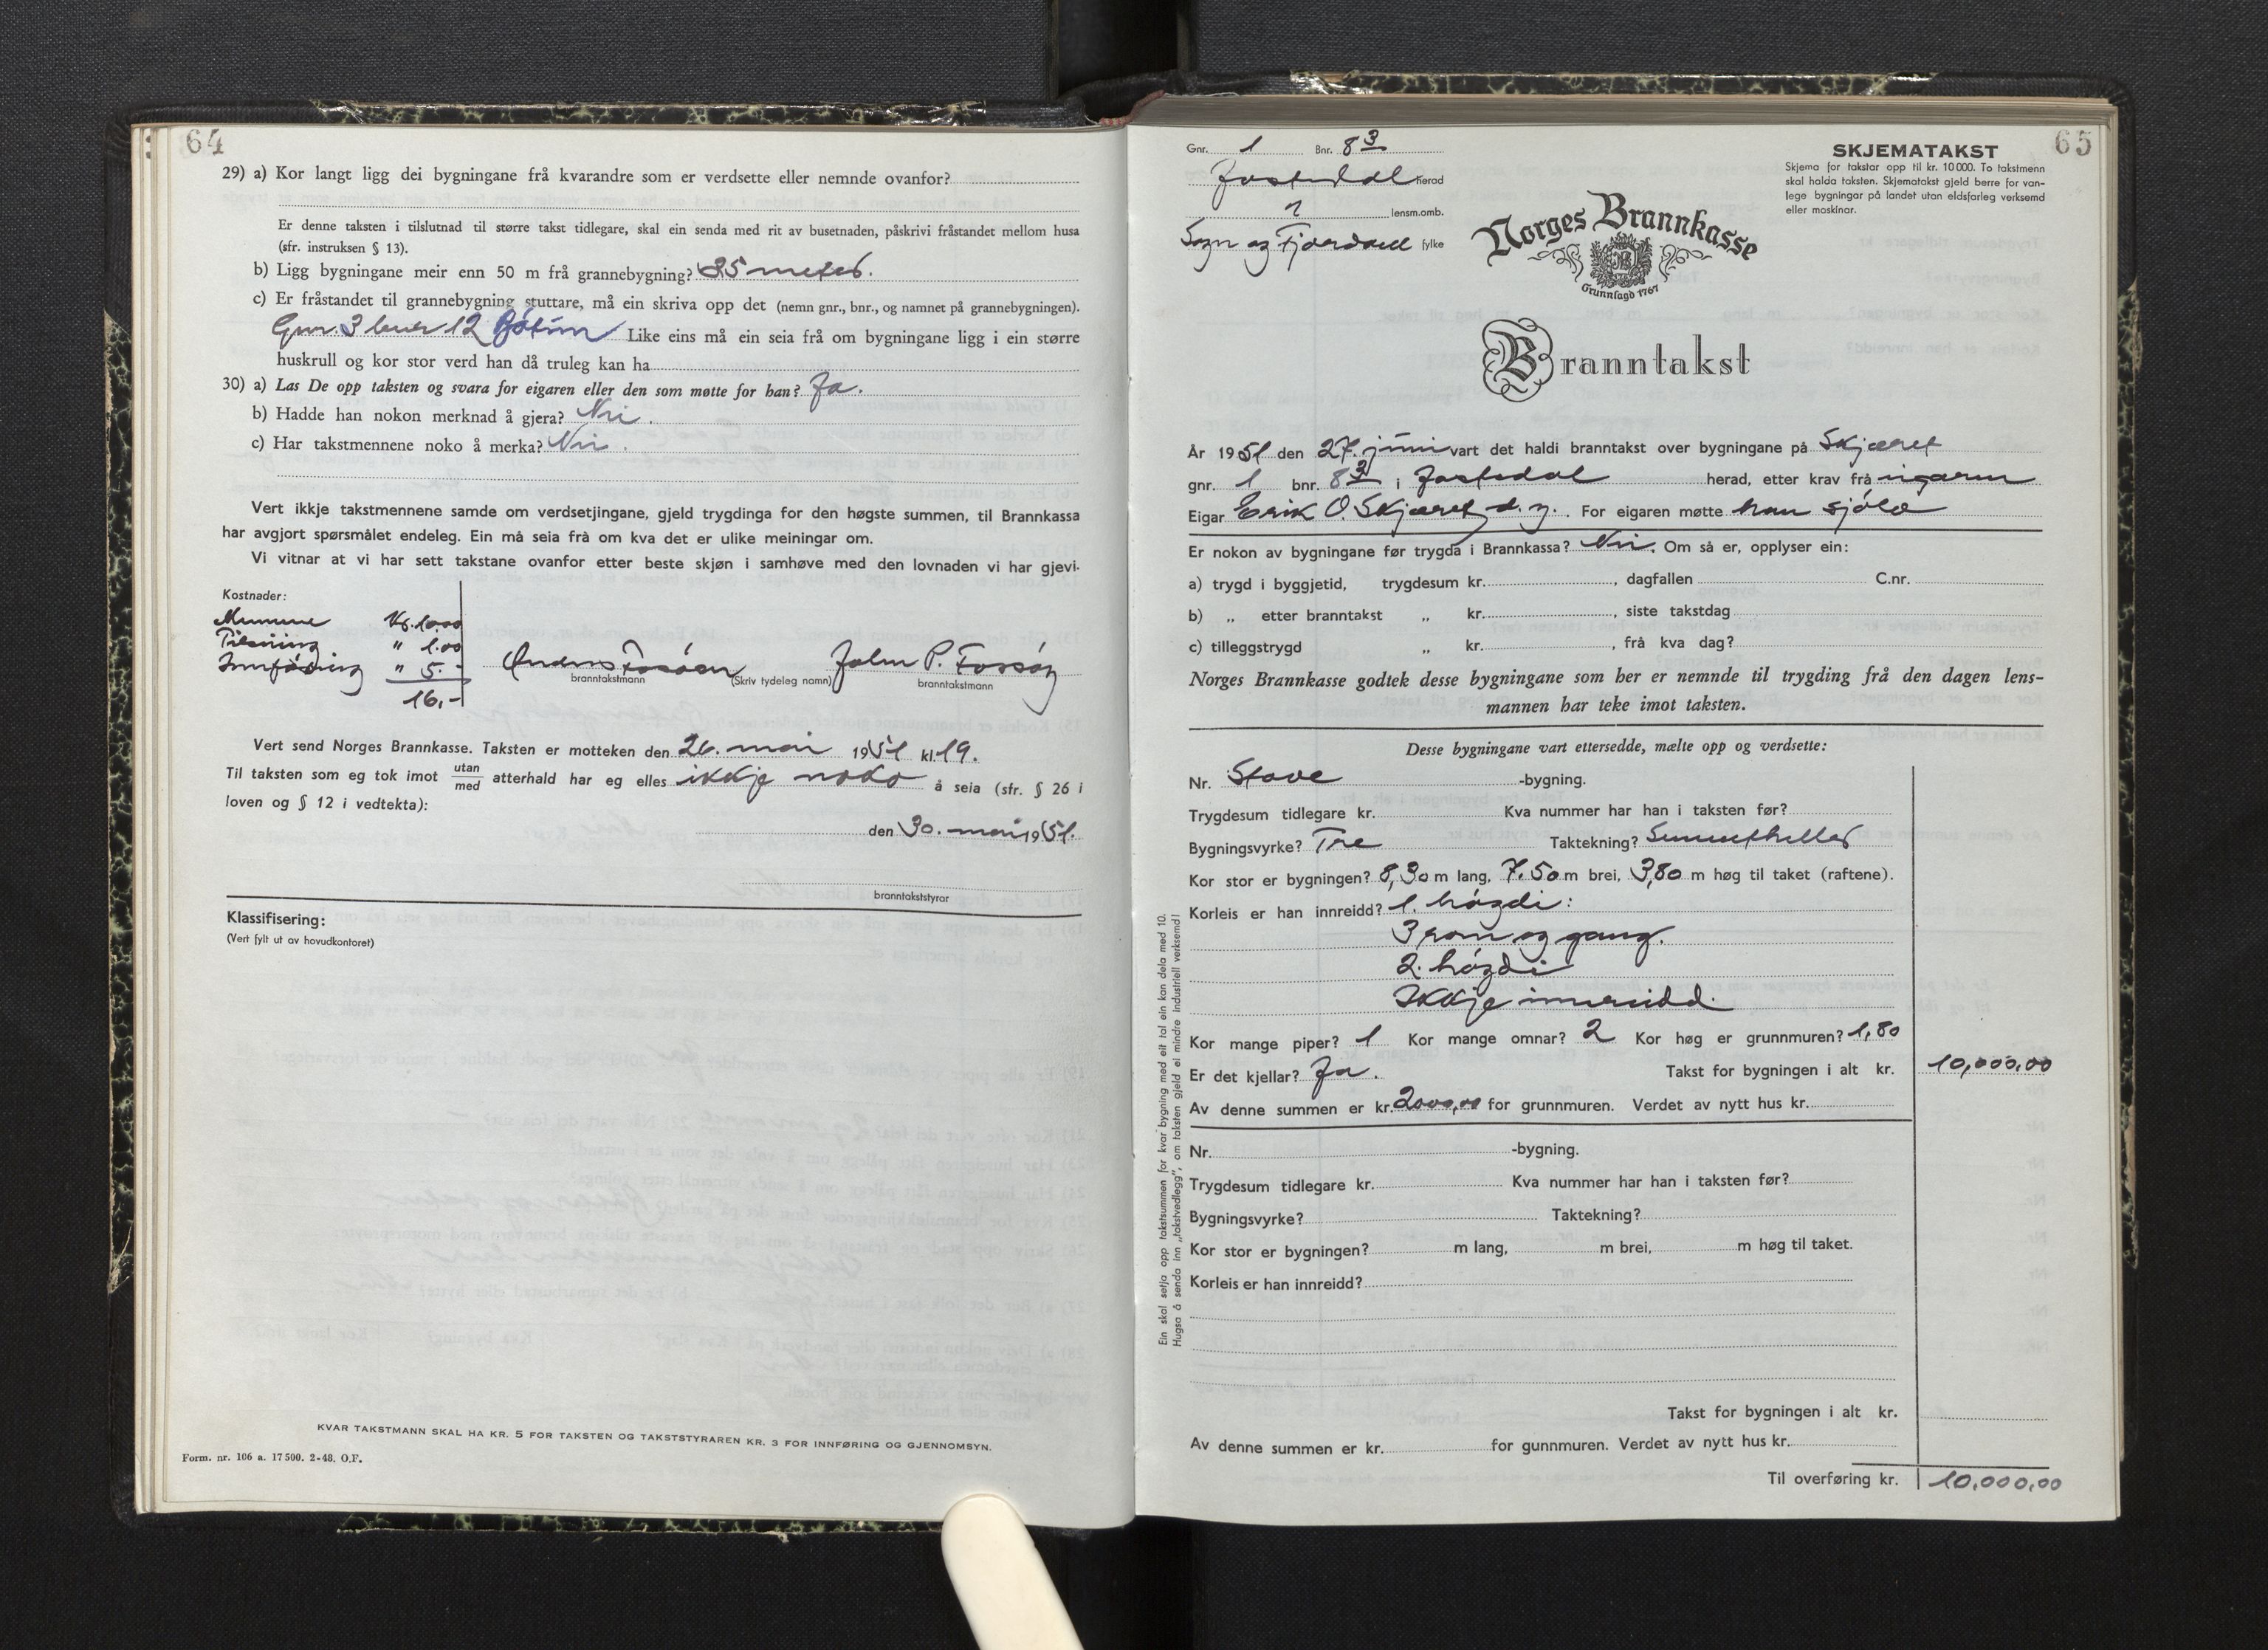 64
29) a) Kor langt ligg dei bygningane frå kvarandre som er verdsette eller nemnde ovanfor?
Er denne taksten i tilslutnad til større takst tidlegare, skal ein senda med rit av busetnaden, påskrivi fråstandet mellom husa
(sfr. instruksen § 13).
b) Ligg bygningane meir enn 50 m frå grannebygning? 35 meter.
c) Er fråstandet til grannebygning stuttare, må ein skriva opp det (nemn gnr., bnr., og namnet på grannebygningen).
Gnr. 3 bnr 12 Bótun Like eins må ein seia frå om bygningane ligg i ein større
huskrull og kor stor verd han då truleg kan ha
30) a) Las De opp taksten og svara for eigaren eller den som møtte for han? Ja.
b) Hadde han nokon merknad å gjera? Nei.
c) Har takstmennene noko å merka? Nei.
Vert ikkje takstmennene samde om verdsetjingane, gjeld trygdinga for den høgste summen, til Brannkassa
har avgjort spørsmålet endeleg. Ein må seia frå om kva det er ulike meiningar om.
Vi vitnar at vi har sett takstane ovanfor etter beste skjøn i samhøve med den lovnaden vi har gjevi.
Kostnader:
Mennene Kr. 10.00
" 1.00
Innføring " 5.-
16,-
Anders Fossøen John P. Fossøy
branntakstmann (Skriv tydeleg namn) branntakstmann
Vert send Norges Brannkasse. Taksten er motteken den 26. mai 1951 kl. 19.
Til taksten som eg tok imot utan/med atterhald har eg elles ikkje noko å seia (sfr. § 26 i
loven og § 12 i vedtekta):
den 30. mai 1951.
branntakststyrar
Klassifisering:
(Vert fylt ut av hovudkontoret)
KVAR TAKSTMANN SKAL HA KR. 5 FOR TAKSTEN OG TAKSTSTYRAREN KR. 3 FOR INNFØRING OG GJENNOMSYN.
Form. nr. 106 a. 17500. 2-48. O.F.
65
Gnr. 1 Bnr. 83
Jostedal herad
lensm.omb.
Sogn og Fjordane fylke
SKJEMATAKST
Skjema for takstar opp til kr. 10000. To takstmenn
skal halda taksten. Skjematakst gjeld berre for van-
lege bygningar på landet utan eldsfarleg verksemd
eller maskinar.
Norges Brannkasse
Grunnlagd 1767
Branntakst
År 1951 den 27. juni vart det haldi branntakst over bygningane på Skjæret
gnr. 1 bnr. 83 i Jostedal herad, etter krav frå eigaren
Eigar Erik O. Skjæret d. y. . For eigaren møtte han sjølv
Er nokon av bygningane før trygda i Brannkassa? Nei. Om så er, opplyser ein:
a) trygd i byggjetid, trygdesum kr. , dagfallen C.nr.
b) „ etter branntakst „ kr. , siste takstdag
c) tilleggstrygd „ kr. , frå kva dag?
Norges Brannkasse godtek desse bygningane som her er nemnde til trygding frå den dagen lens-
mannen har teke imot taksten.
Desse bygningane vart ettersedde, mælte opp og verdsette:
Nr. Stove -bygning.
Trygdesum tidlegare kr. Kva nummer har han i taksten før?
Bygningsvyrke? Tre Taktekning? Sementheller
Kor stor er bygningen? 8,30 m lang, 7.50 m brei, 3,80 m høg til taket (raftene).
Korleis er han innreidd? 1. høgdi:
3 rom og gang.
2. høgdi
Ikkje innreidd.
Kor mange piper? 1 Kor mange omnar? 2 Kor høg er grunnmuren? 1,80
Er det kjellar? Ja. Takst for bygningen i alt kr. 10,000,00
Av denne summen er kr. 2000,00 for grunnmuren. Verdet av nytt hus kr.
Nr. -bygning.
Trygdesum tidlegare kr. Kva nummer har han i taksten før?
Bygningsvyrke? Taktekning?
Kor stor er bygningen? m lang, m brei, m høg til taket.
Korleis er han innreidd?
Takst for bygningen i alt kr.
Av denne summen er kr. for gunnmuren. Verdet av nytt hus kr.
Til overføring kr. 10.000,00
Ein skal setja opp takstsummen for kvar bygning med eit tal ein kan dela med 10.
Hugsa å senda inn „takstvedlegg", om taksten gjeld ei mindre industriell verksemd!